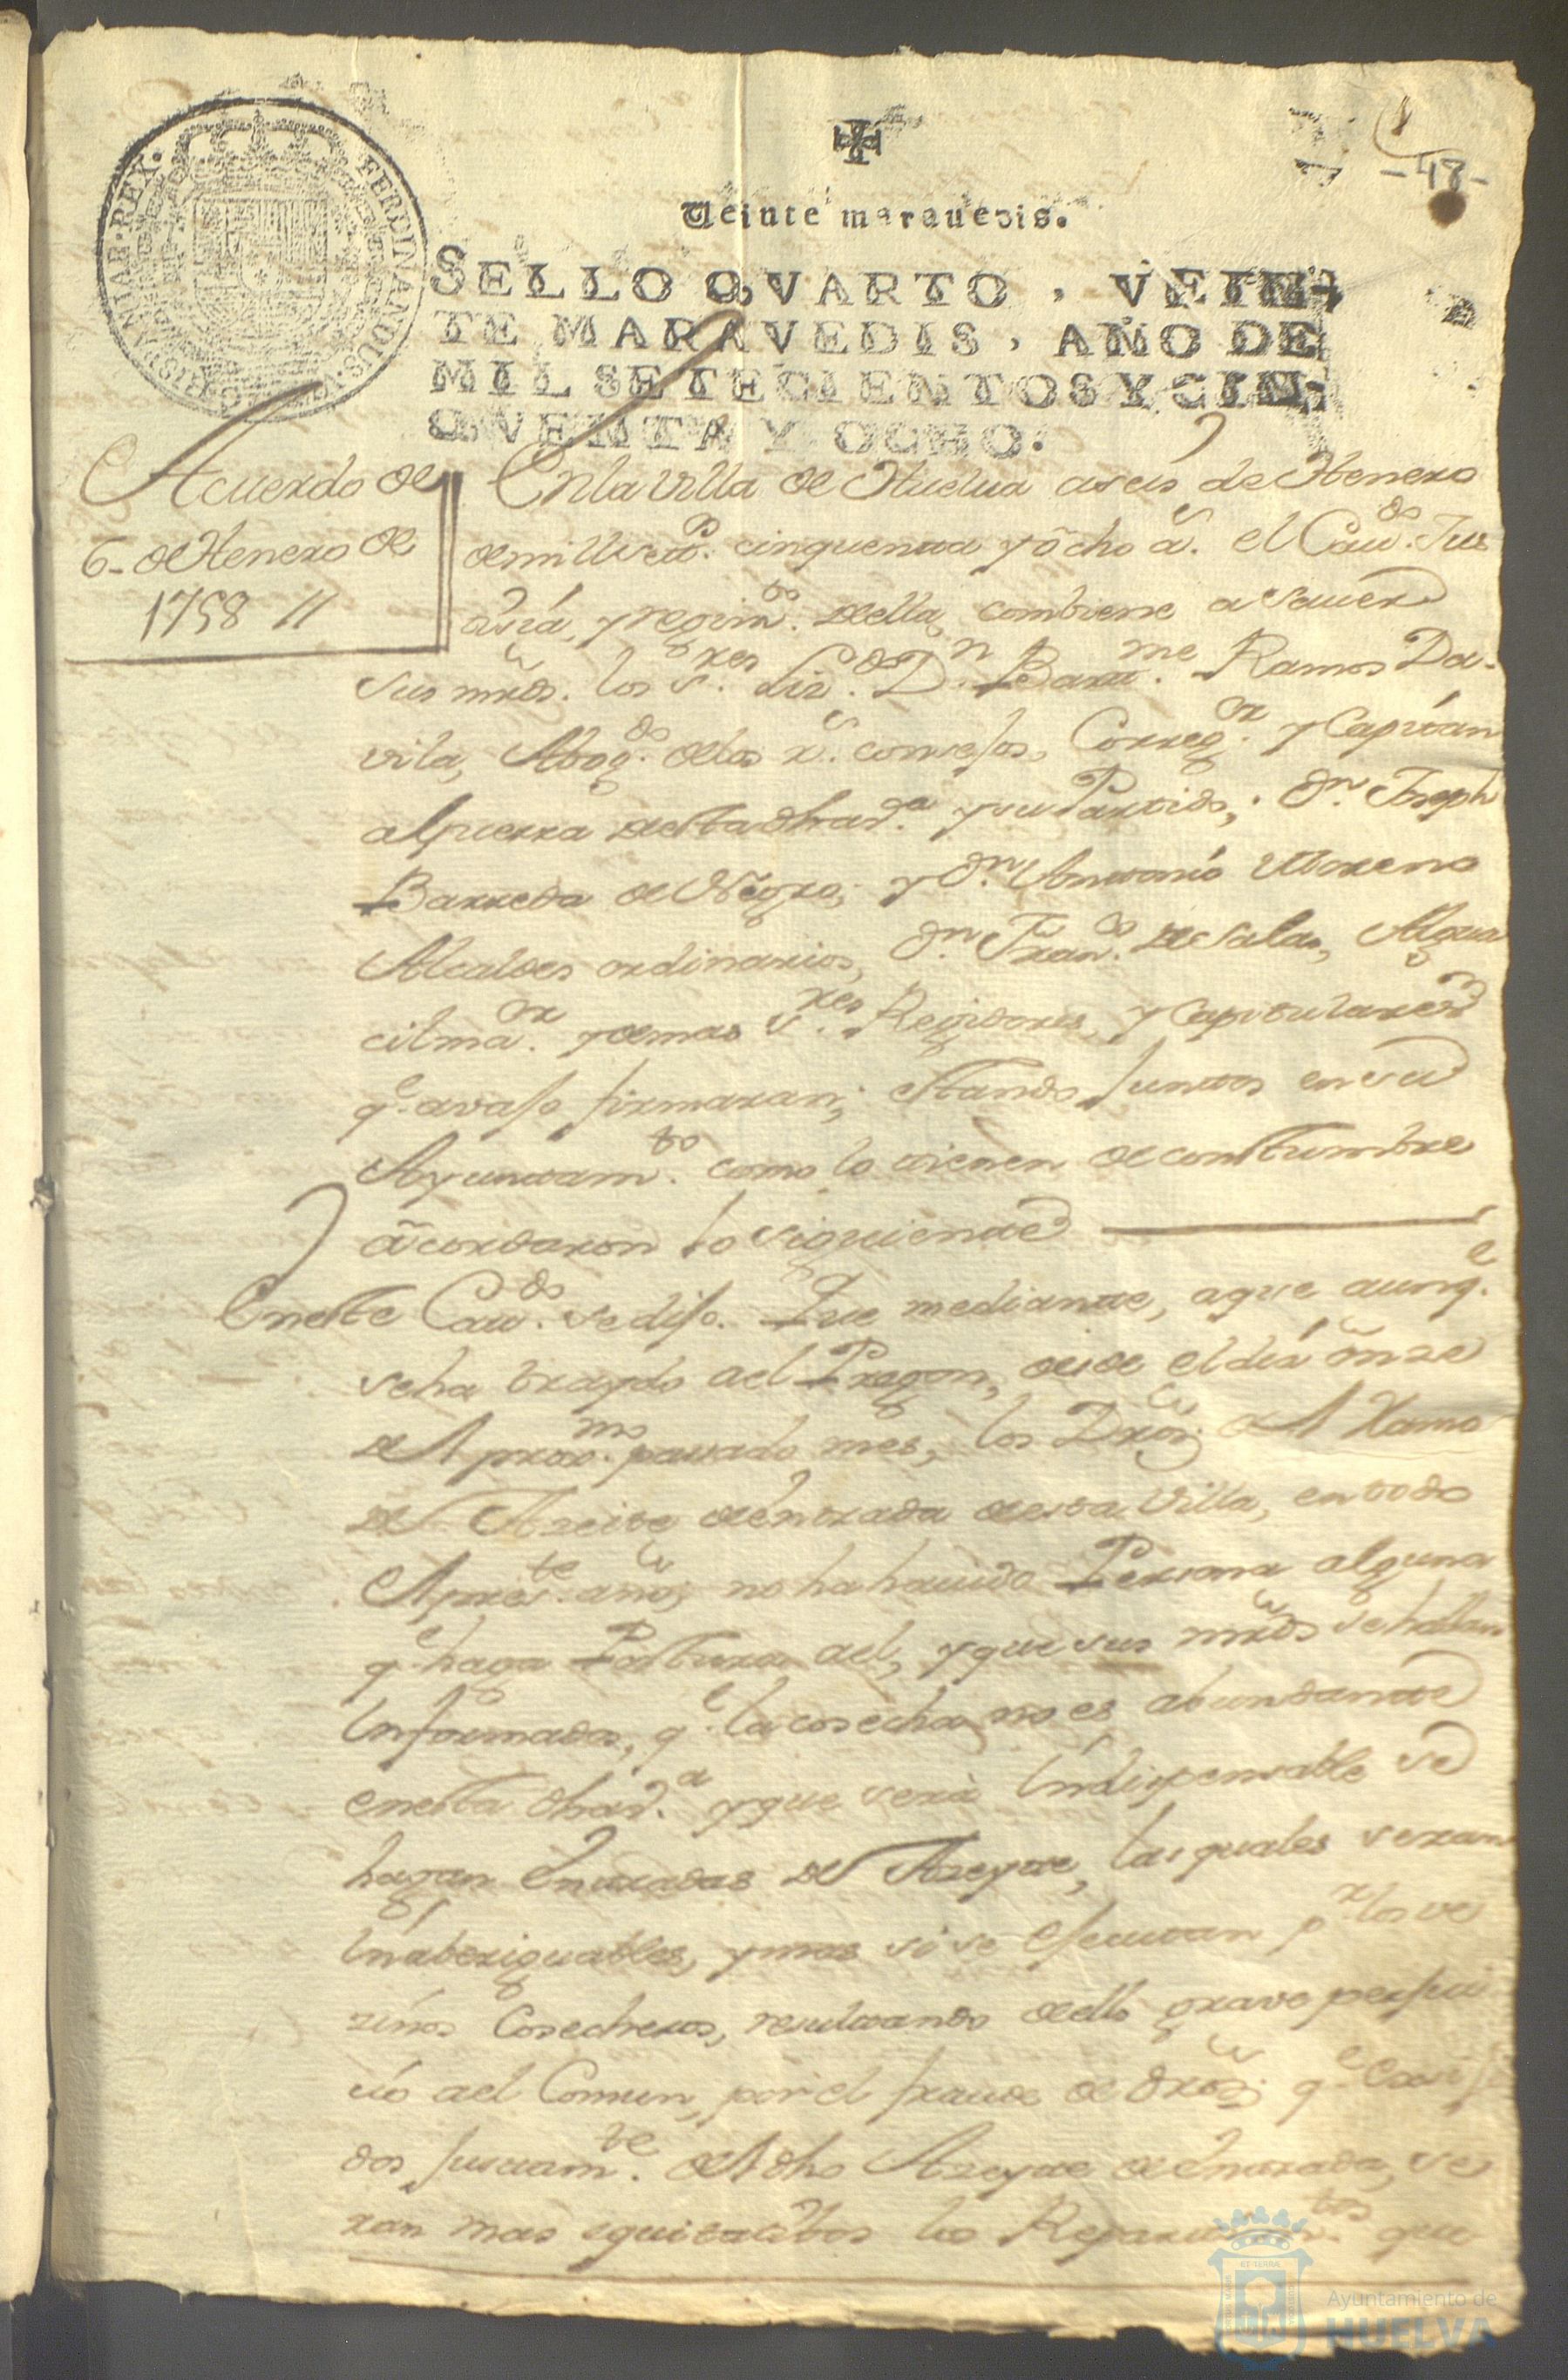 1
-48-
HISPANIAR·REX·
FERDINANDUS·
Ueinte marauedis.
SELLO QVARTO, VEIN-
TE MARAVEDIS, AÑO DE
MIL SETECIENTOS Y CIN-
QVENTA Y OCHO.
Acuerdo de
6- de Henero de
1758 //
En la Villa de Huelua a seis de Henero
de mill setos. cinquenta y ôcho as. el Caudo. Jus
tisia, y regimto. della, combiene a sauer
sus mrds. los sres. Lizdo. Dn. Barme. Ramos Da-
vila, Abogdo. de los rs. consejos, Corregor. y Capitan
a Guerra desta dha va. y su Partido; Dn. Joseph
Barreda de Negro; y Dn. Antonio Moreno
Alcaldes ordinarios, Dn. Franco. de Salas, Algua
cil mar. y demas sres. Regidores, y Capitulares
qe. avajo firmaran; estando juntos en su
Ayuntamto. como lo tienen de constumbre
acordaron lo siguiente
En este Caudo. se dijo. Que mediante, a que aunqe.
se ha traydo al Pregon, desde el dia onze
del proxmo. pasado mes, los Dros; del Ramo
del Azeite de entrada de esta Villa, en todo
el preste. año; no ha hauido Persona alguna
qe haga Postura a el, y que sus mrds se hallan
Informados, qe. la cosecha no es abundante
en esta dha va. y que sera Indispensable se
hagan Entradas del Azeyte, las quales seran
Inaberiguables, y mas si se ejecutan pr. los ve
zinos Cosecheros, resultando dello grave perjui
cio al Comun, por el fraude de dros; qe
dos justamte. del dho Azeyte de Entrada, se
ran mas equitatibos los Repartimtos. que
Ayuntamiento de
HUELVA